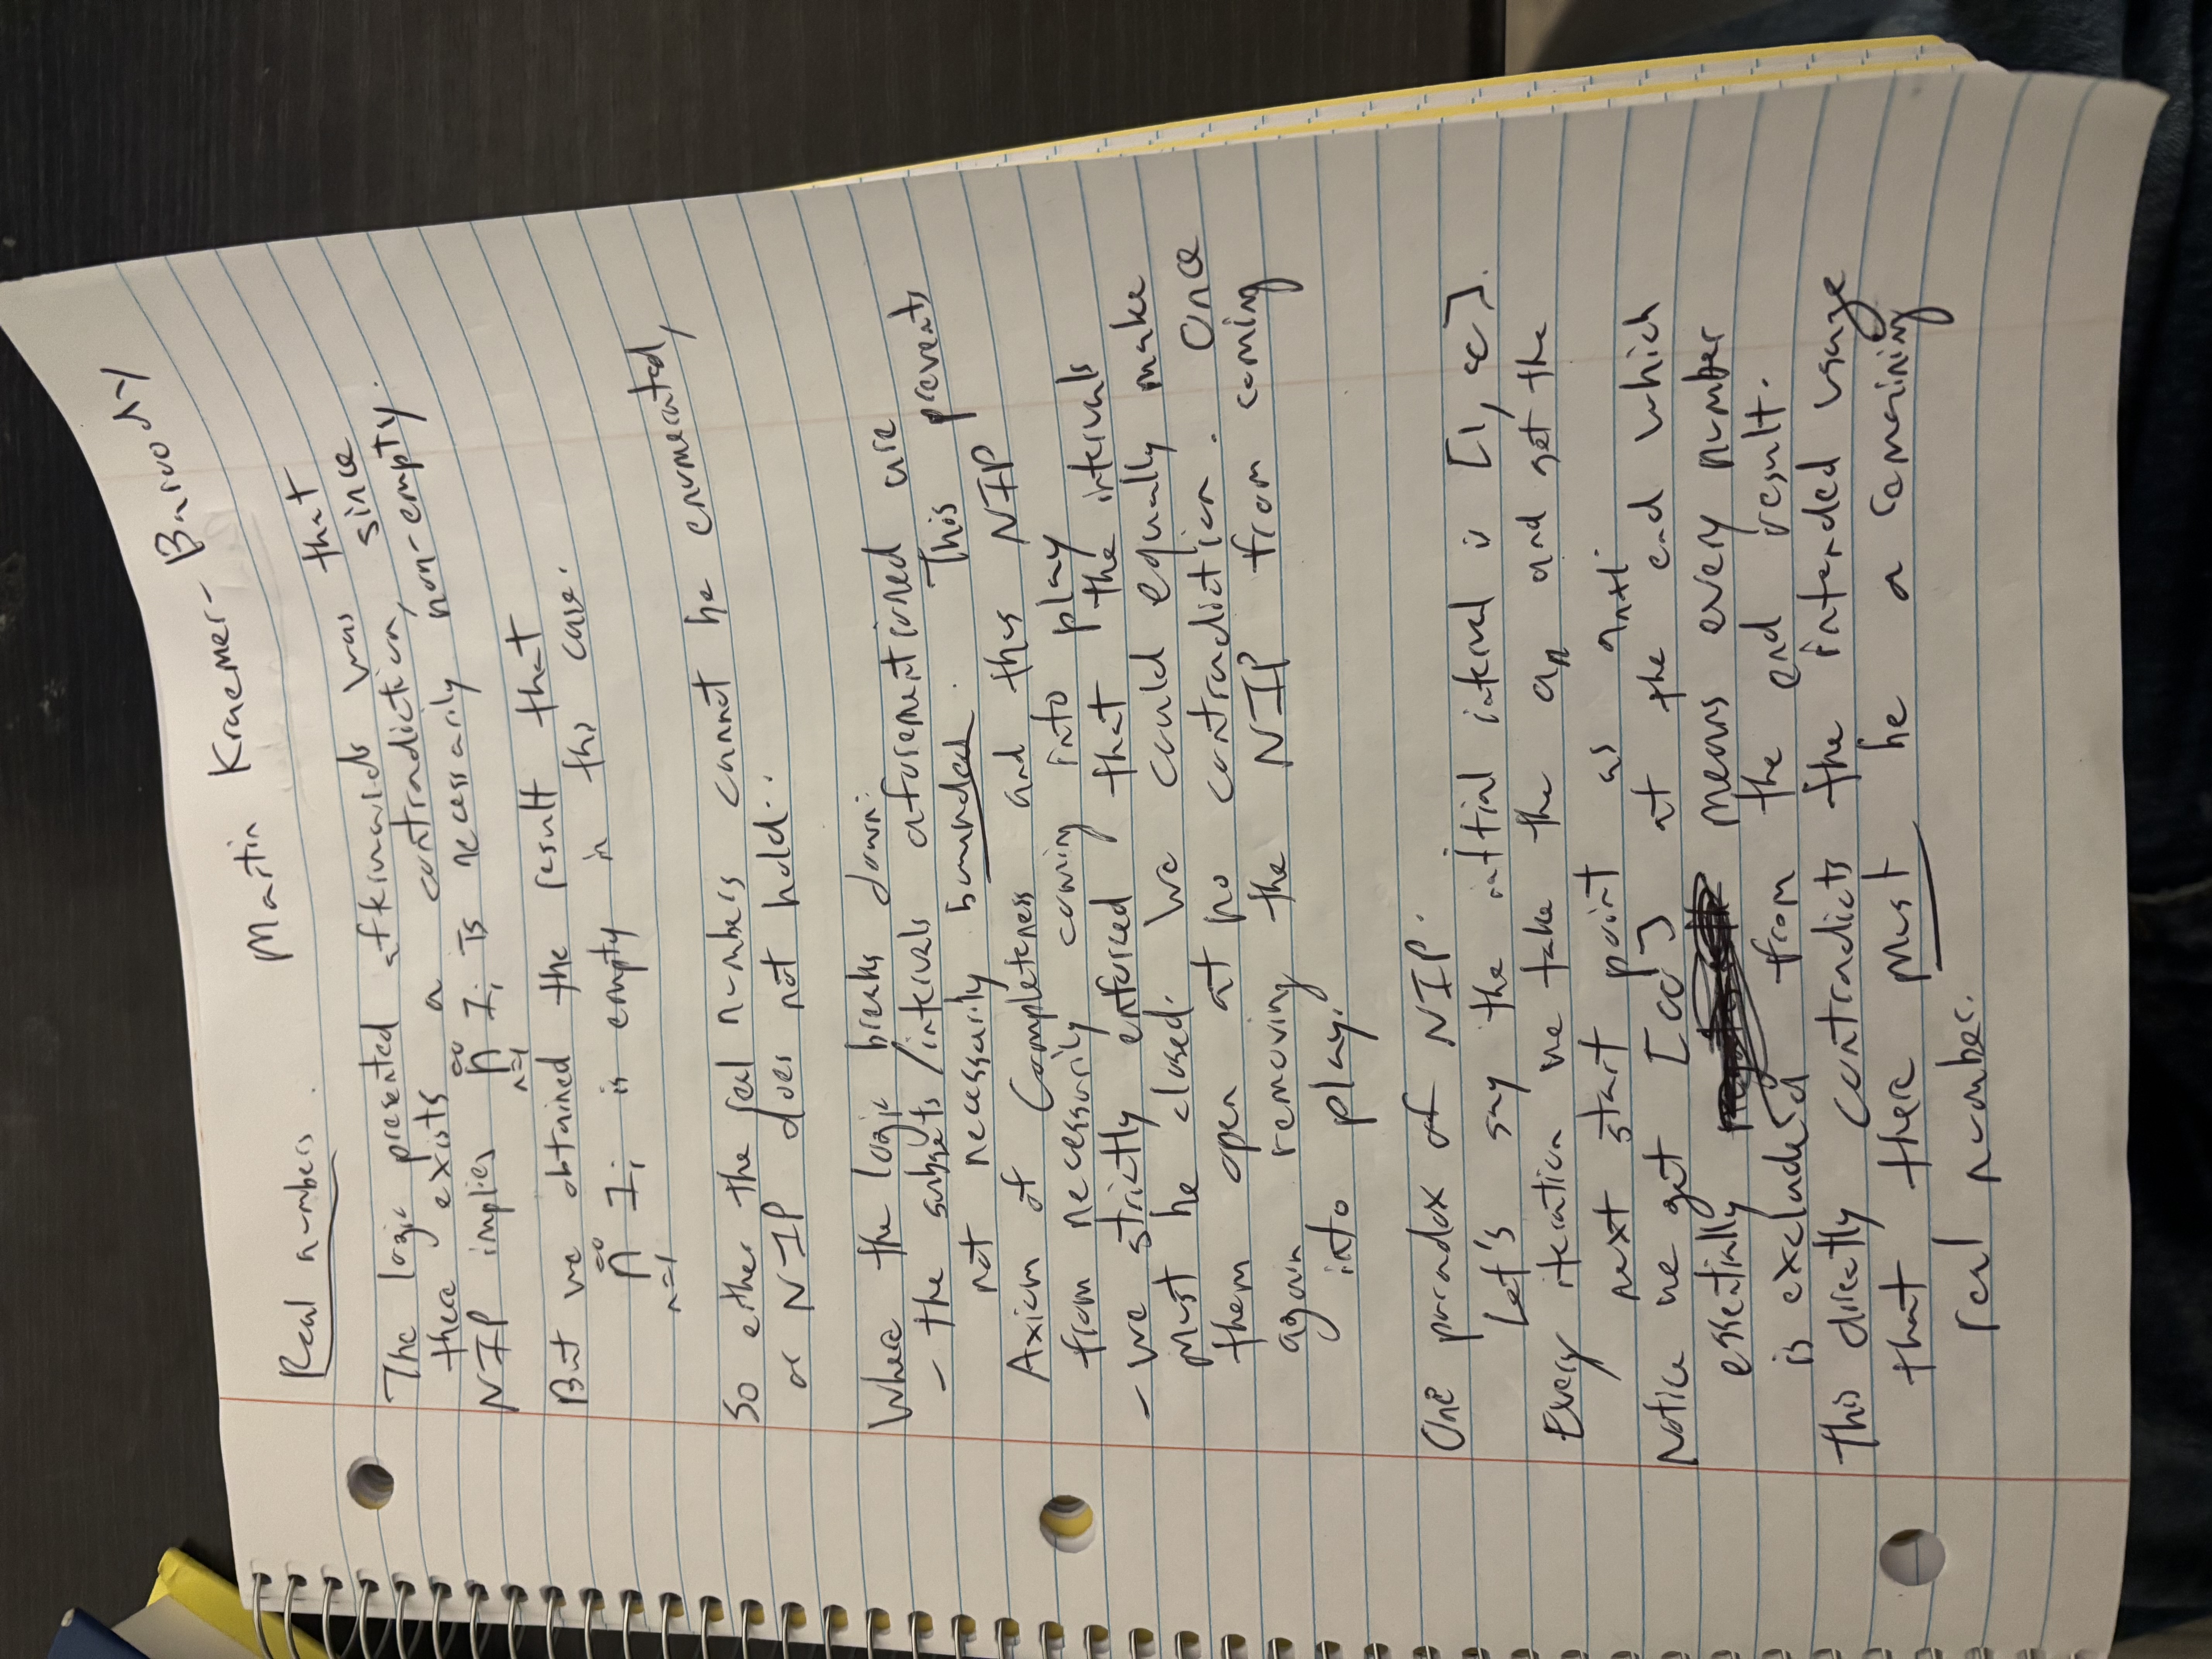 Martin Kraemer-
Real numbers
The logic presented afterwards was that
there exists a contradiction, since
NIP implies ∞∩n=1 Ii is necessarily non-empty.
But we obtained the result that
∞∩n=1 Ii is empty in this case.
So either the real numbers cannot be enumerated,
or NIP does not hold..
Where the logic breaks down:
- the subsets/intervals aforementioned are
not necessarily bounded. This prevents
Axiom of Completeness and thus NIP
from necessarily coming into play
- we strictly enforced that the intervals
must be closed. We could equally make
them open at no contradiction. Once
again removing the NIP from coming
into play.
One paradox of NIP.
Let's say the initial interval is [1, ∞].
Every iteration we take the an and get the
next start point as an+1.
Notice we get [∞] at the end which
essentially means every number
is excluded from the end result.
This directly contradicts the intended usage
that there must be a remaining
real number.